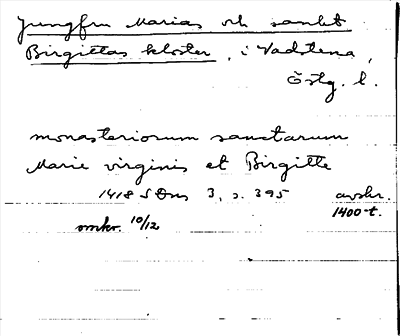 Jungfru Marias och sankt
Birgittas kloster, i Vadstena,
Östg. l.
monasteriorum sanctarum
Marie virginis et Birgitte
1418 SDns 3, s. 395 avskr.
1400-t.
omkr. 10/12